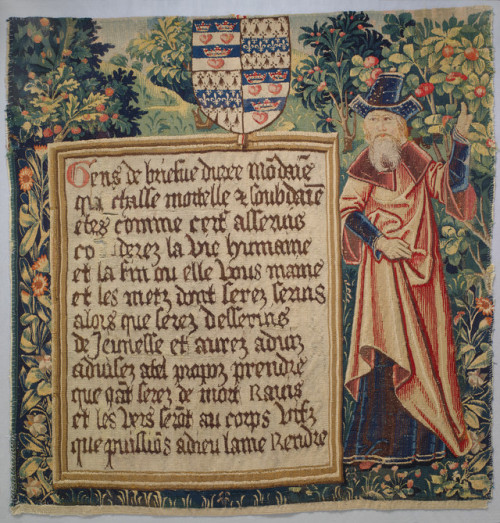 Gens de briefue duree mōdaīe
qui a chasse mortelle & soubdaīe
estes comme cerf asseruis
considerez la vie humaine
et la fin ou elle vous maine
et les metz dont serez seruis
alors que serez desseruis
de Jeunesse et aurez aduiz
aduisez a tel propoz prendre
que qāt serez de mort Rauis
et les vers serōt au corps vifz
que puissiōs a dieu lame Rendre